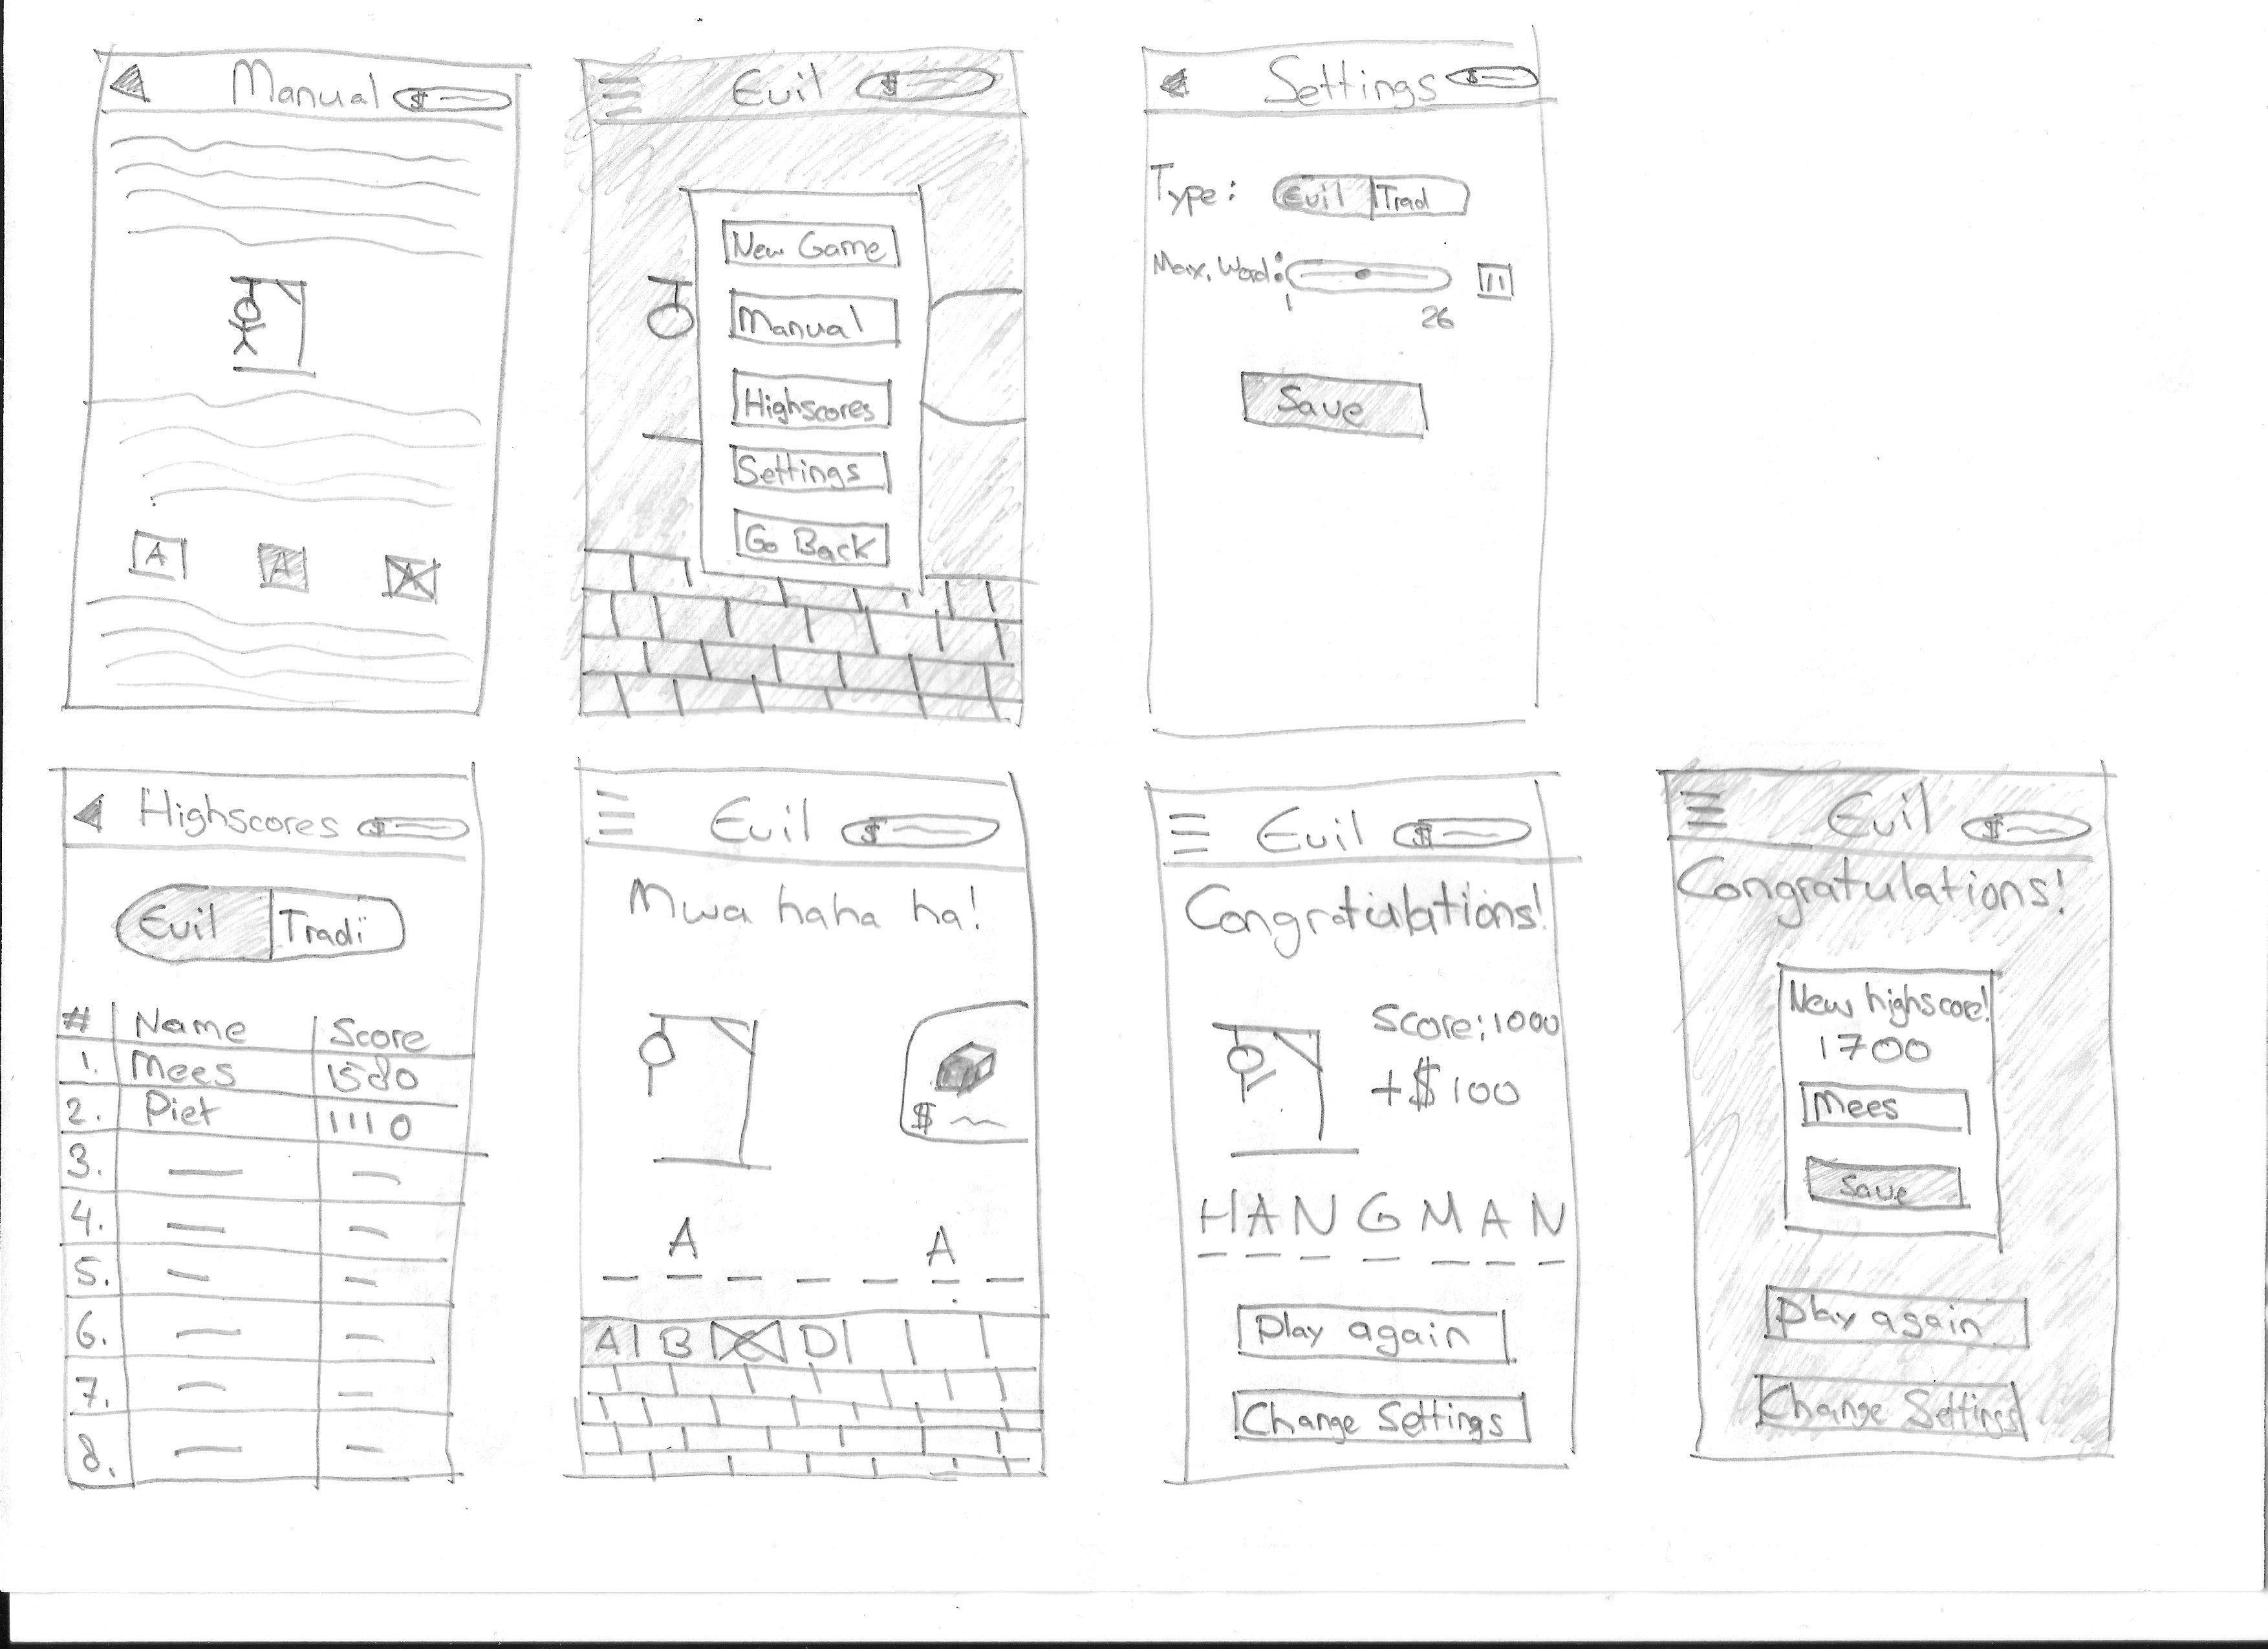 Manual $
A A A
Evil $
New Game
Manual
Highscores
Settings
Go Back
Settings $
Type: Evil Trad
Max. Word:
1 26
Save
Highscores $
Evil Tradi
# Name Score
1. Mees 1580
2. Piet 1110
3.
4.
5.
6.
7.
8.
Evil $
Mwa haha ha!
$
A A
A B C D
Evil $
Congratulations!
Score: 1000
+$100
HANGMAN
Play again
Change Settings
Evil $
Congratulations!
New highscore!
1700
Mees
Save
Play again
Change Settings